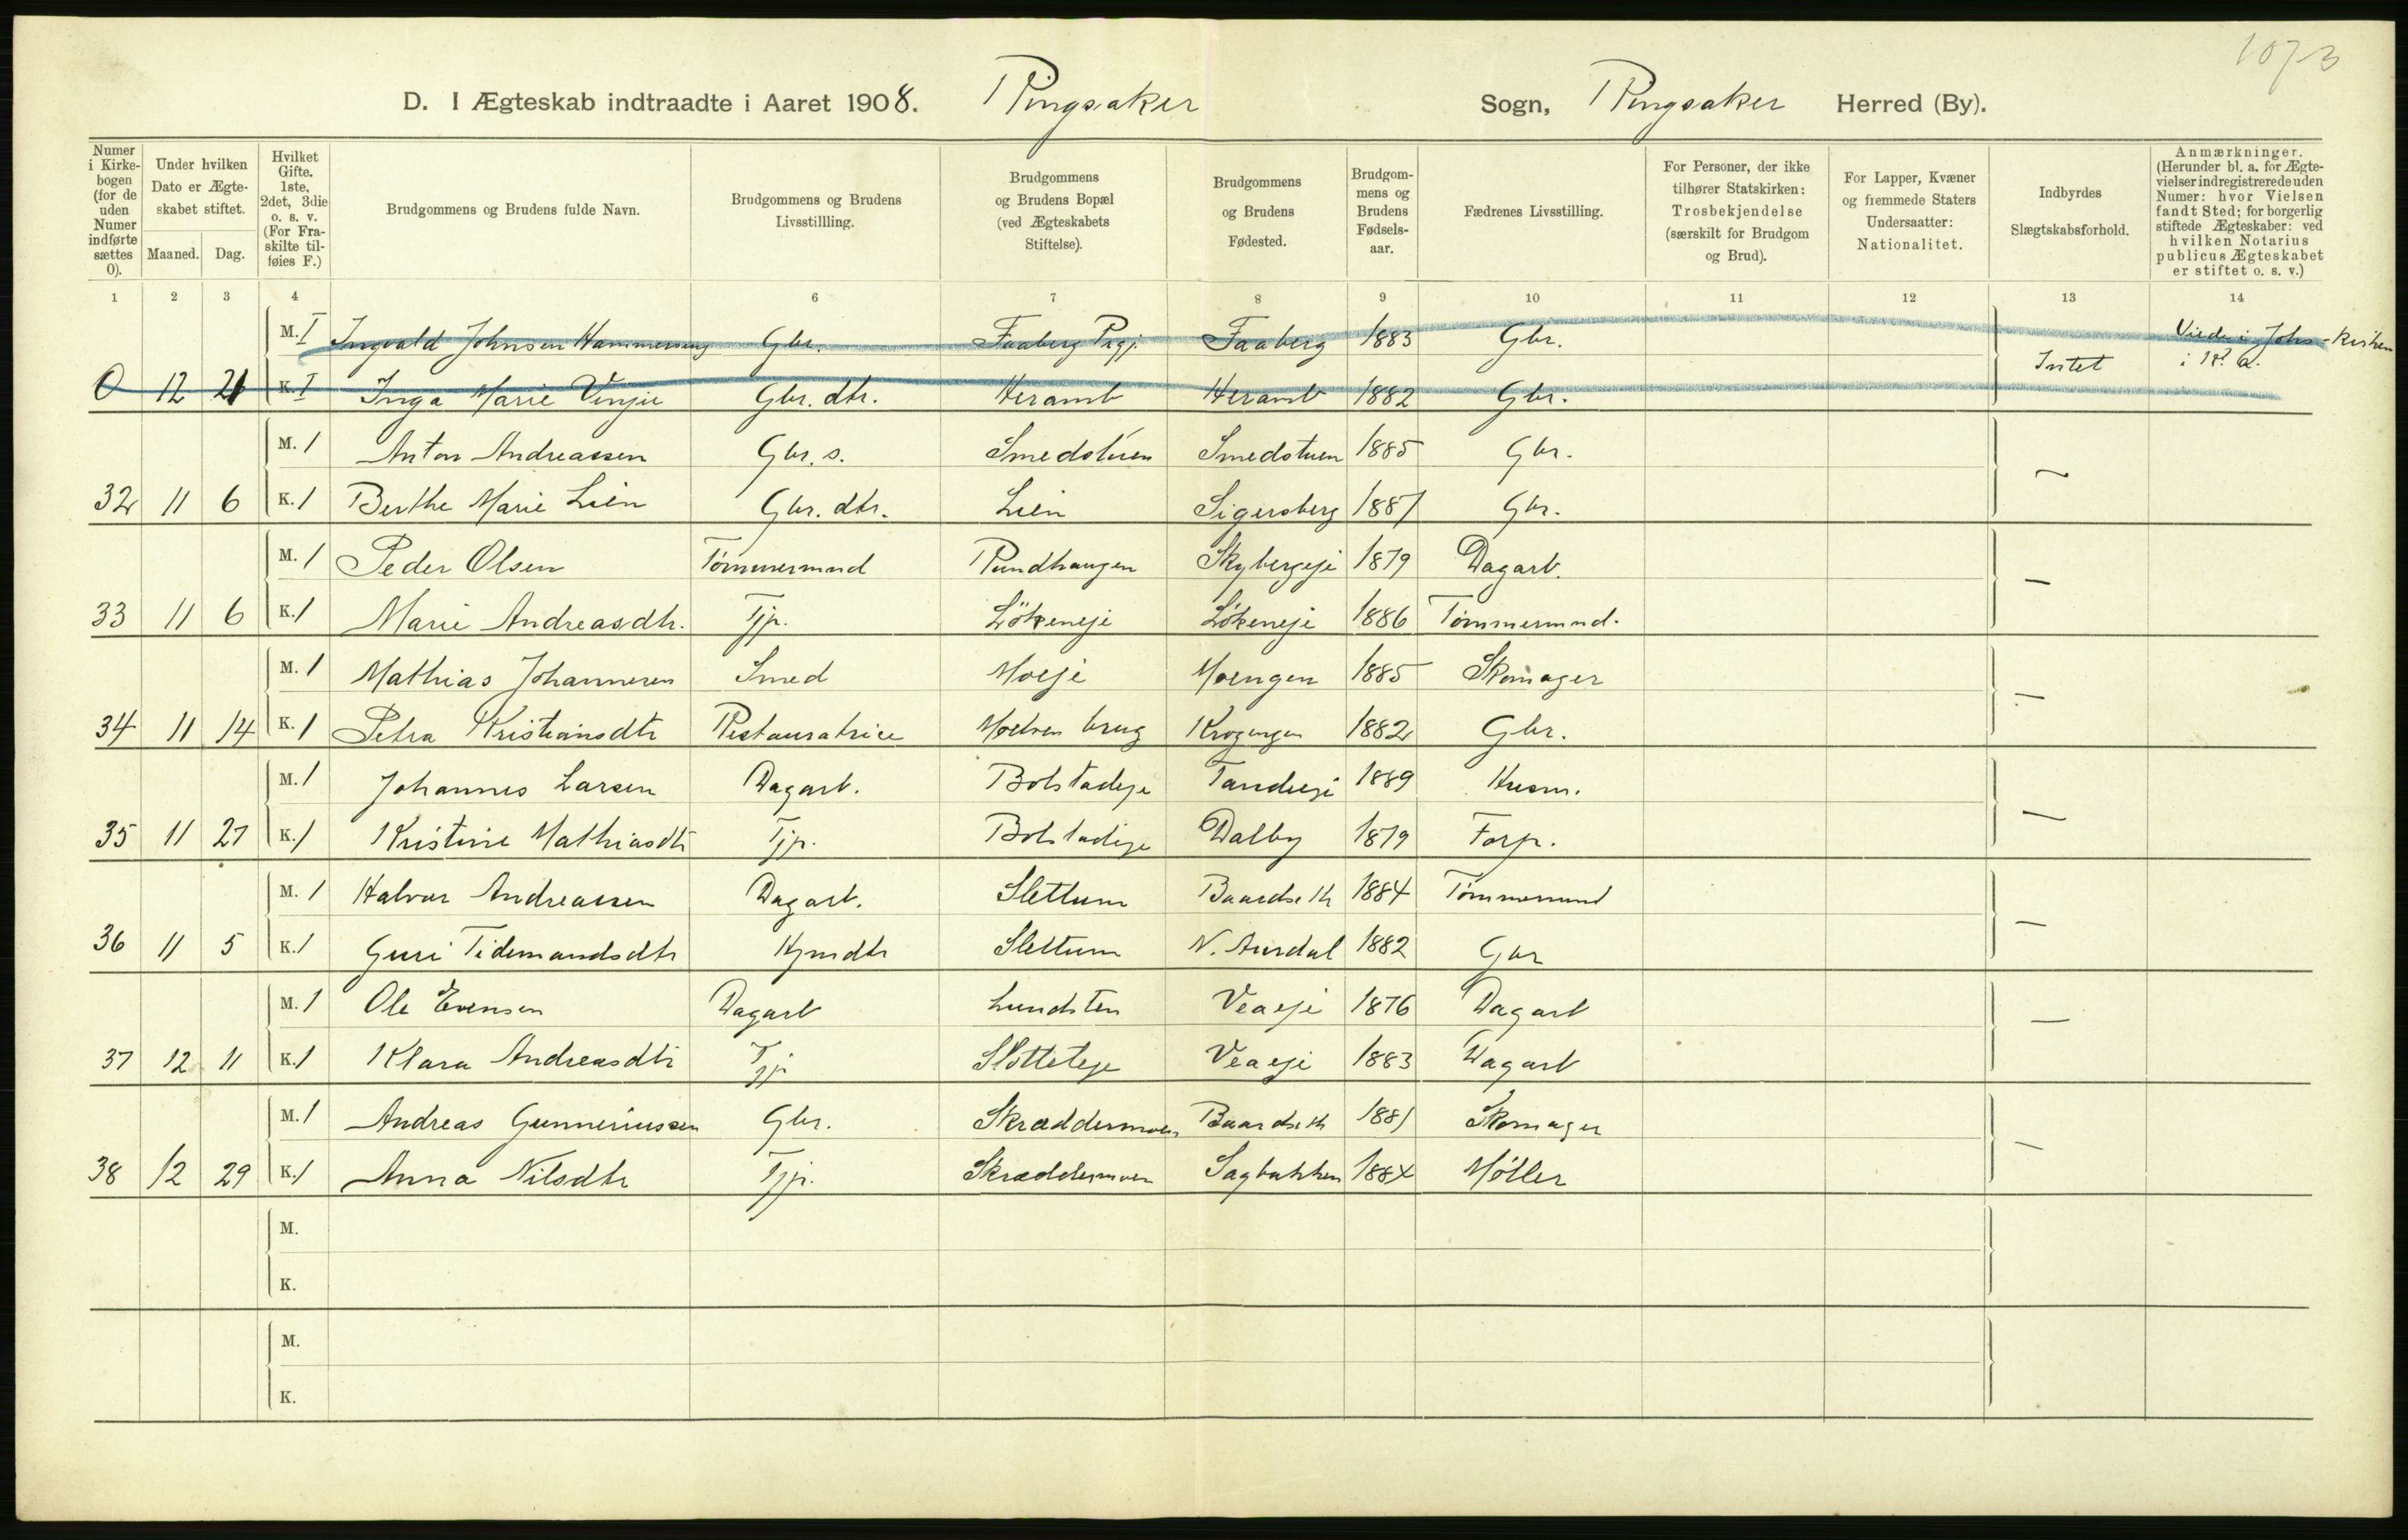 1073
D. I Ægteskab indtraadte i Aaret 1908. Ringsaker Sogn, Ringsaker Herred (By).
Numer i Kirkebogen (for de uden Numer indførte sættes 0).
Under hvilken Dato er Ægteskabet stiftet.
Maaned. Dag.
Hvilket Gifte. 1ste, 2det, 3die o. s. v. (For Fraskilte tilføies F.)
Brudgommens og Brudens fulde Navn.
Brudgommens og Brudens Livsstillling.
Brudgommens og Brudens Bopæl (ved Ægteskabets Stiftelse).
Brudgommens og Brudens Fødested.
Brudgommens og Brudens Fødselsaar.
Fædrenes Livsstilling.
For Personer, der ikke tilhører Statskirken: Trosbekjendelse (særskilt for Brudgom og Brud).
For Lapper, Kvæner og fremmede Staters Undersaatter: Nationalitet.
Indbyrdes Slægtskabsforhold.
Anmærkninger. (Herunder bl. a. for Ægtevielser indregistrerede uden Numer: hvor Vielsen fandt Sted; for borgerlig stiftede Ægteskaber: ved hvilken Notarius publicus Ægteskabet er stiftet o. s. v.)
1 2 3 4 6 7 8 9 10 11 12 13 14
M. I Ingvald Johnsen Hammerseng Gbr. Faaberg Prgj. Faaberg 1883 Gbr. Viede i Johs-kirken
0 12 21 K. I Inga Marie Vinju Gbr. dtr. Heramb Heramb 1882 Gbr. Intet i
M. 1 Anton Andreassen Gbr. s. Smedstuen Smedstuen 1885 Gbr.
32 11 6 K. 1 Berthe Marie Lien Gbr. dtr. Lien Sigersberg 1887 Gbr. ~
M. 1 Peder Olsen Tømmermnd Rundhaugen Skybergeje 1879 Dagarb.
33 11 6 K. 1 Marie Andreasdtr. Tjp. Løkeneje Løkeneje 1886 Tømmermnd. —
M. 1 Mathias Johannesen Smed Moeje Moengen 1885 Skomager
34 11 14 K. 1 Petra Kristiansdtr Restauratrice Moelven brug Krogengen 1882 Gbr. —
M. 1 Johannes Larsen Dagarb. Bolstadeje Tandeeje 1889 Husm.
35 11 27 K. 1 Kristine Mathiasdtr Tjp. Bolstadeje Dalby 1879 Forp. —
M. 1 Halvor Andreassen Dagarb. Slettum Baardseth 1884 Tømmermnd
36 11 5 K. 1 Guri Tidemandsdtr Slettum N. Aurdal 1882 Gbr —
M. 1 Ole Evensen Dagarb Lundsten Veaeje 1876 Dagarb
37 12 11 K. 1 Klara Andreasdtr Tjp Veaeje 1883 Dagarb —
M. 1 Andreas Gunneriussen Gbr. Skræddermoen Baardseth 1881 Skomager
38 12 29 K. 1 Anna Nilsdtr Tjp. Skræddermoen Sagbakken 1884 Møller —
M.
K.
M.
K.